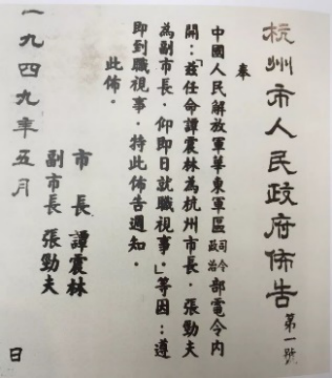 杭州市人民政府佈告 第一號
奉
中國人民解放軍華東軍區司令政治部電令內
開：「茲任命譚震林為杭州市長．張勁夫
為副市長．仰即日就職視事．」等因：遵
即到職視事．特此佈告週知．
此佈．
市長 譚震林
副市長 張勁夫
一九四九年五月 日